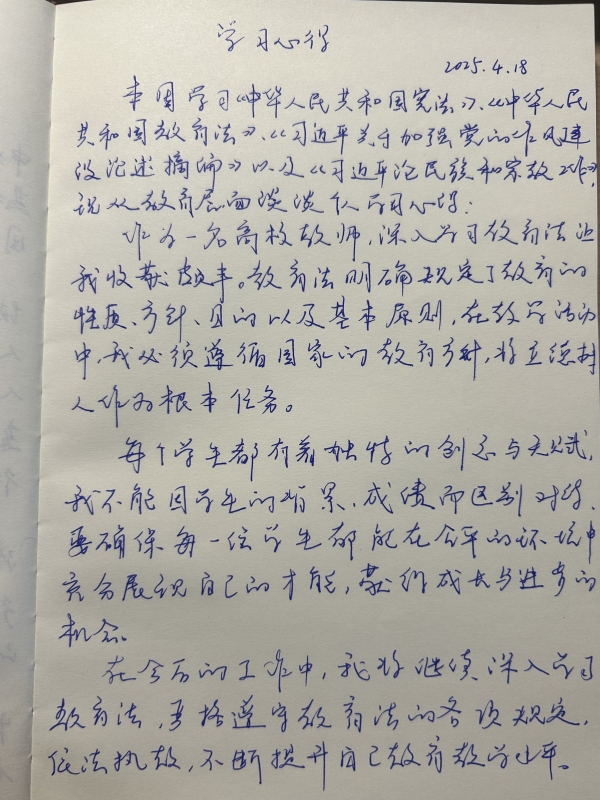 学习心得
2025.4.18
本周学习《中华人民共和国宪法》、《中华人民
共和国教育法》、《习近平关于加强党的作风建
设论述摘编》以及《习近平论民族和宗教工作》,
说从教育层面谈谈个人学习心得:
作为一名高校教师,深入学习教育法让
我收获颇丰。教育法明确规定了教育的
性质、方针、目的以及基本原则,在教学活动
中,我必须遵循国家的教育方针,将立德树
人作为根本任务。
每个学生都有着独特的创意与天赋,
我不能因学生的背景、成绩而区别对待,
要确保每一位学生都能在公平的环境中
充分展现自己的才能,获得成长与进步的
机会。
在今后的工作中,我将继续深入学习
教育法,严格遵守教育法的各项规定,
依法执教,不断提升自己教育教学水平。